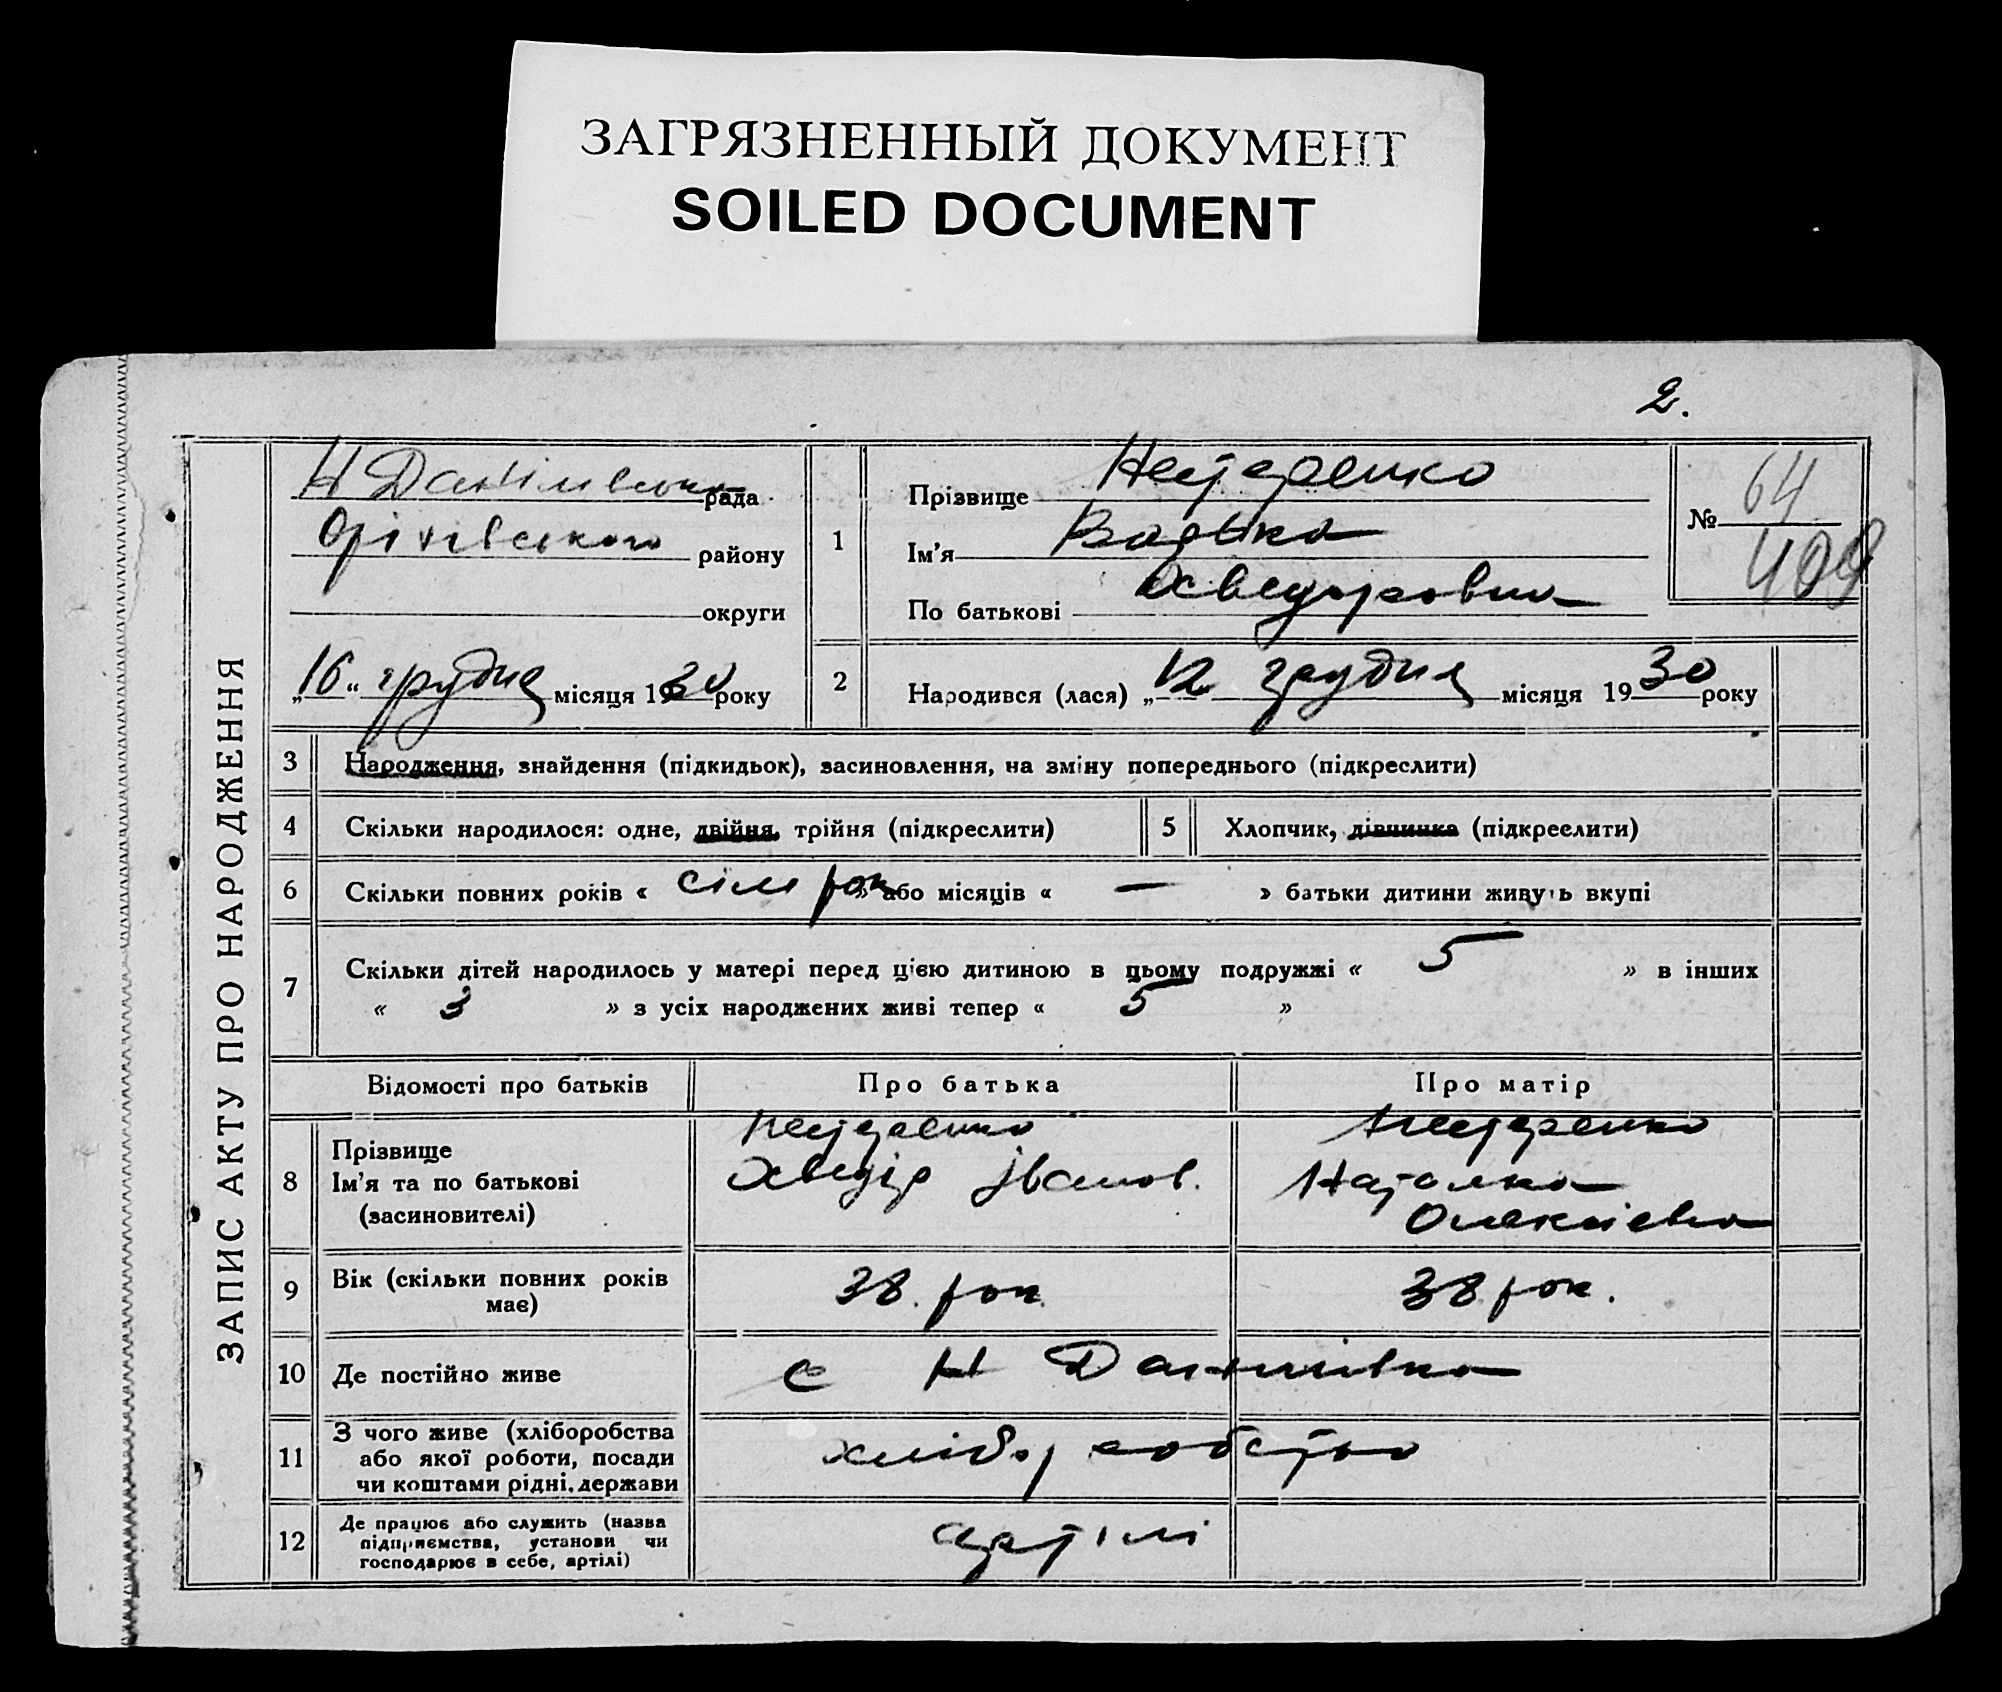 ЗАГРЯЗНЕННЫЙ ДОКУМЕНТ
SOILED DOCUMENT
2.
ЗАПИС АКТУ ПРО НАРОДЖЕННЯ
Н Данилівська рада
Оріхівського району
округи
„16“ грудня місяця 1930 року
1
Прізвище Нестеренко
Ім'я Варька
По батькові Хведоровна
№ 64
409
2
Народився (лася) „12 грудня місяця 1930 року
3 Народження, знайдення (підкидьок), засиновлення, на зміну попереднього (підкреслити)
4 Скільки народилося: одне, двійня, трійня (підкреслити)
5 Хлопчик, дівчинка (підкреслити)
6 Скільки повних років « сім рок » або місяців « — » батьки дитини живуть вкупі
7 Скільки дітей народилось у матері перед цією дитиною в цьому подружжі « 5 » в інших
« 3 » з усіх народжених живі тепер « 5 »
Відомості про батьків Про батька Про матір
8 Прізвище Нестеренко Нестеренко
Ім'я та по батькові Хведір Іванов. Наталка
(засиновителі) Олексіевна
9 Вік (скільки повних років має) 38 рок. 38 рок.
10 Де постійно живе с Н Данилівка
11 З чого живе (хліборобства
або якої роботи, посади хліборобство
чи коштами рідні, держави
12 Де працює або служить (назва
підприємства, установи чи артілі
господарює в себе, артілі)